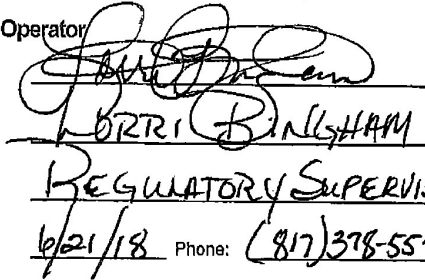 Operator
LORRI BINGHAM
REGULATORY SUPERVIS
6/21/18 Phone: (817)378-55